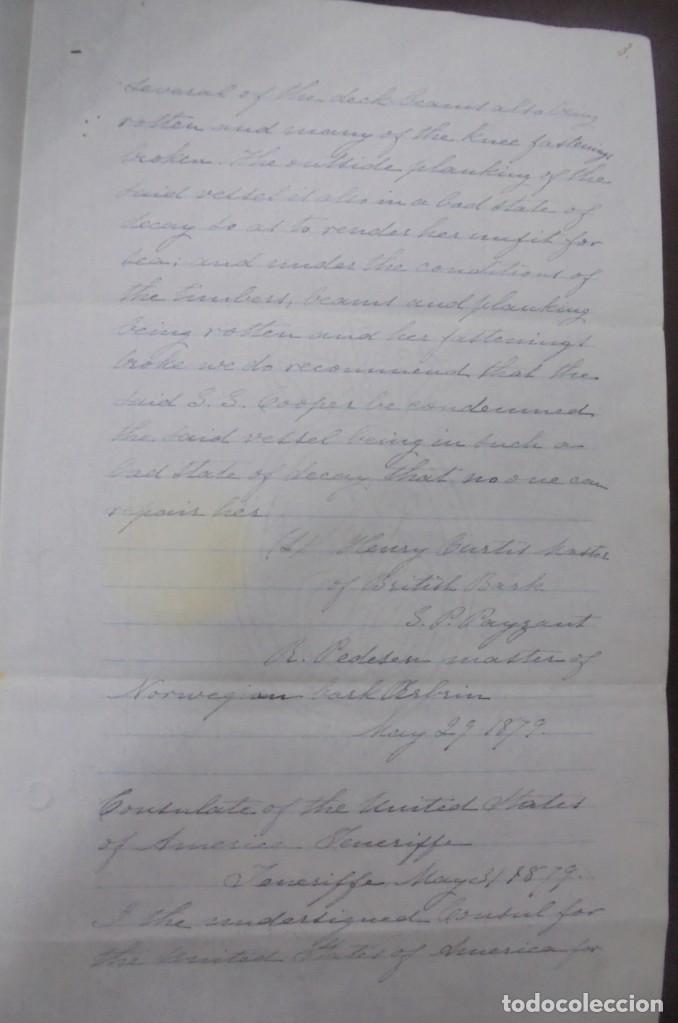 3.
several of the deck beams also being
rotten and many of the knee fastenings
broken. The outside planking of the
said vessel is also in a bad state of
decay so as to render her unfit for
sea; and under the conditions of
the timbers, beams and planking
being rotten and her fastenings
broke we do recommend that the
said S. S. Cooper be condemned
the said vessel being in such a
bad state of decay that no one can
repair her
Henry Curtis Master
of British Bark
S. P. Payzant
R. Pedesen master of
Norwegian bark
May 29 1879.
Consulate of the United States
of America Teneriffe
Teneriffe May 31 1879.
I the undersigned Consul for
the United States of America for
todocoleccion